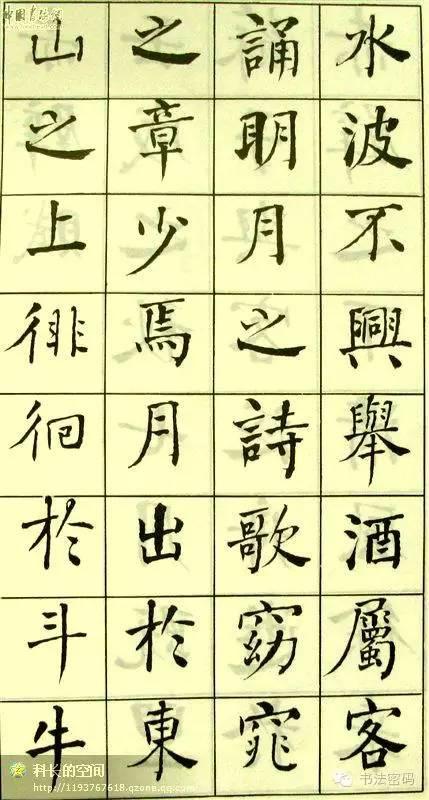 水波不興舉酒屬客
誦明月之詩歌窈窕
之章少焉月出於東
山之上徘徊於斗牛
中国书法网
科长的空间
http://1193767618.qzone.qq.com
书法密码